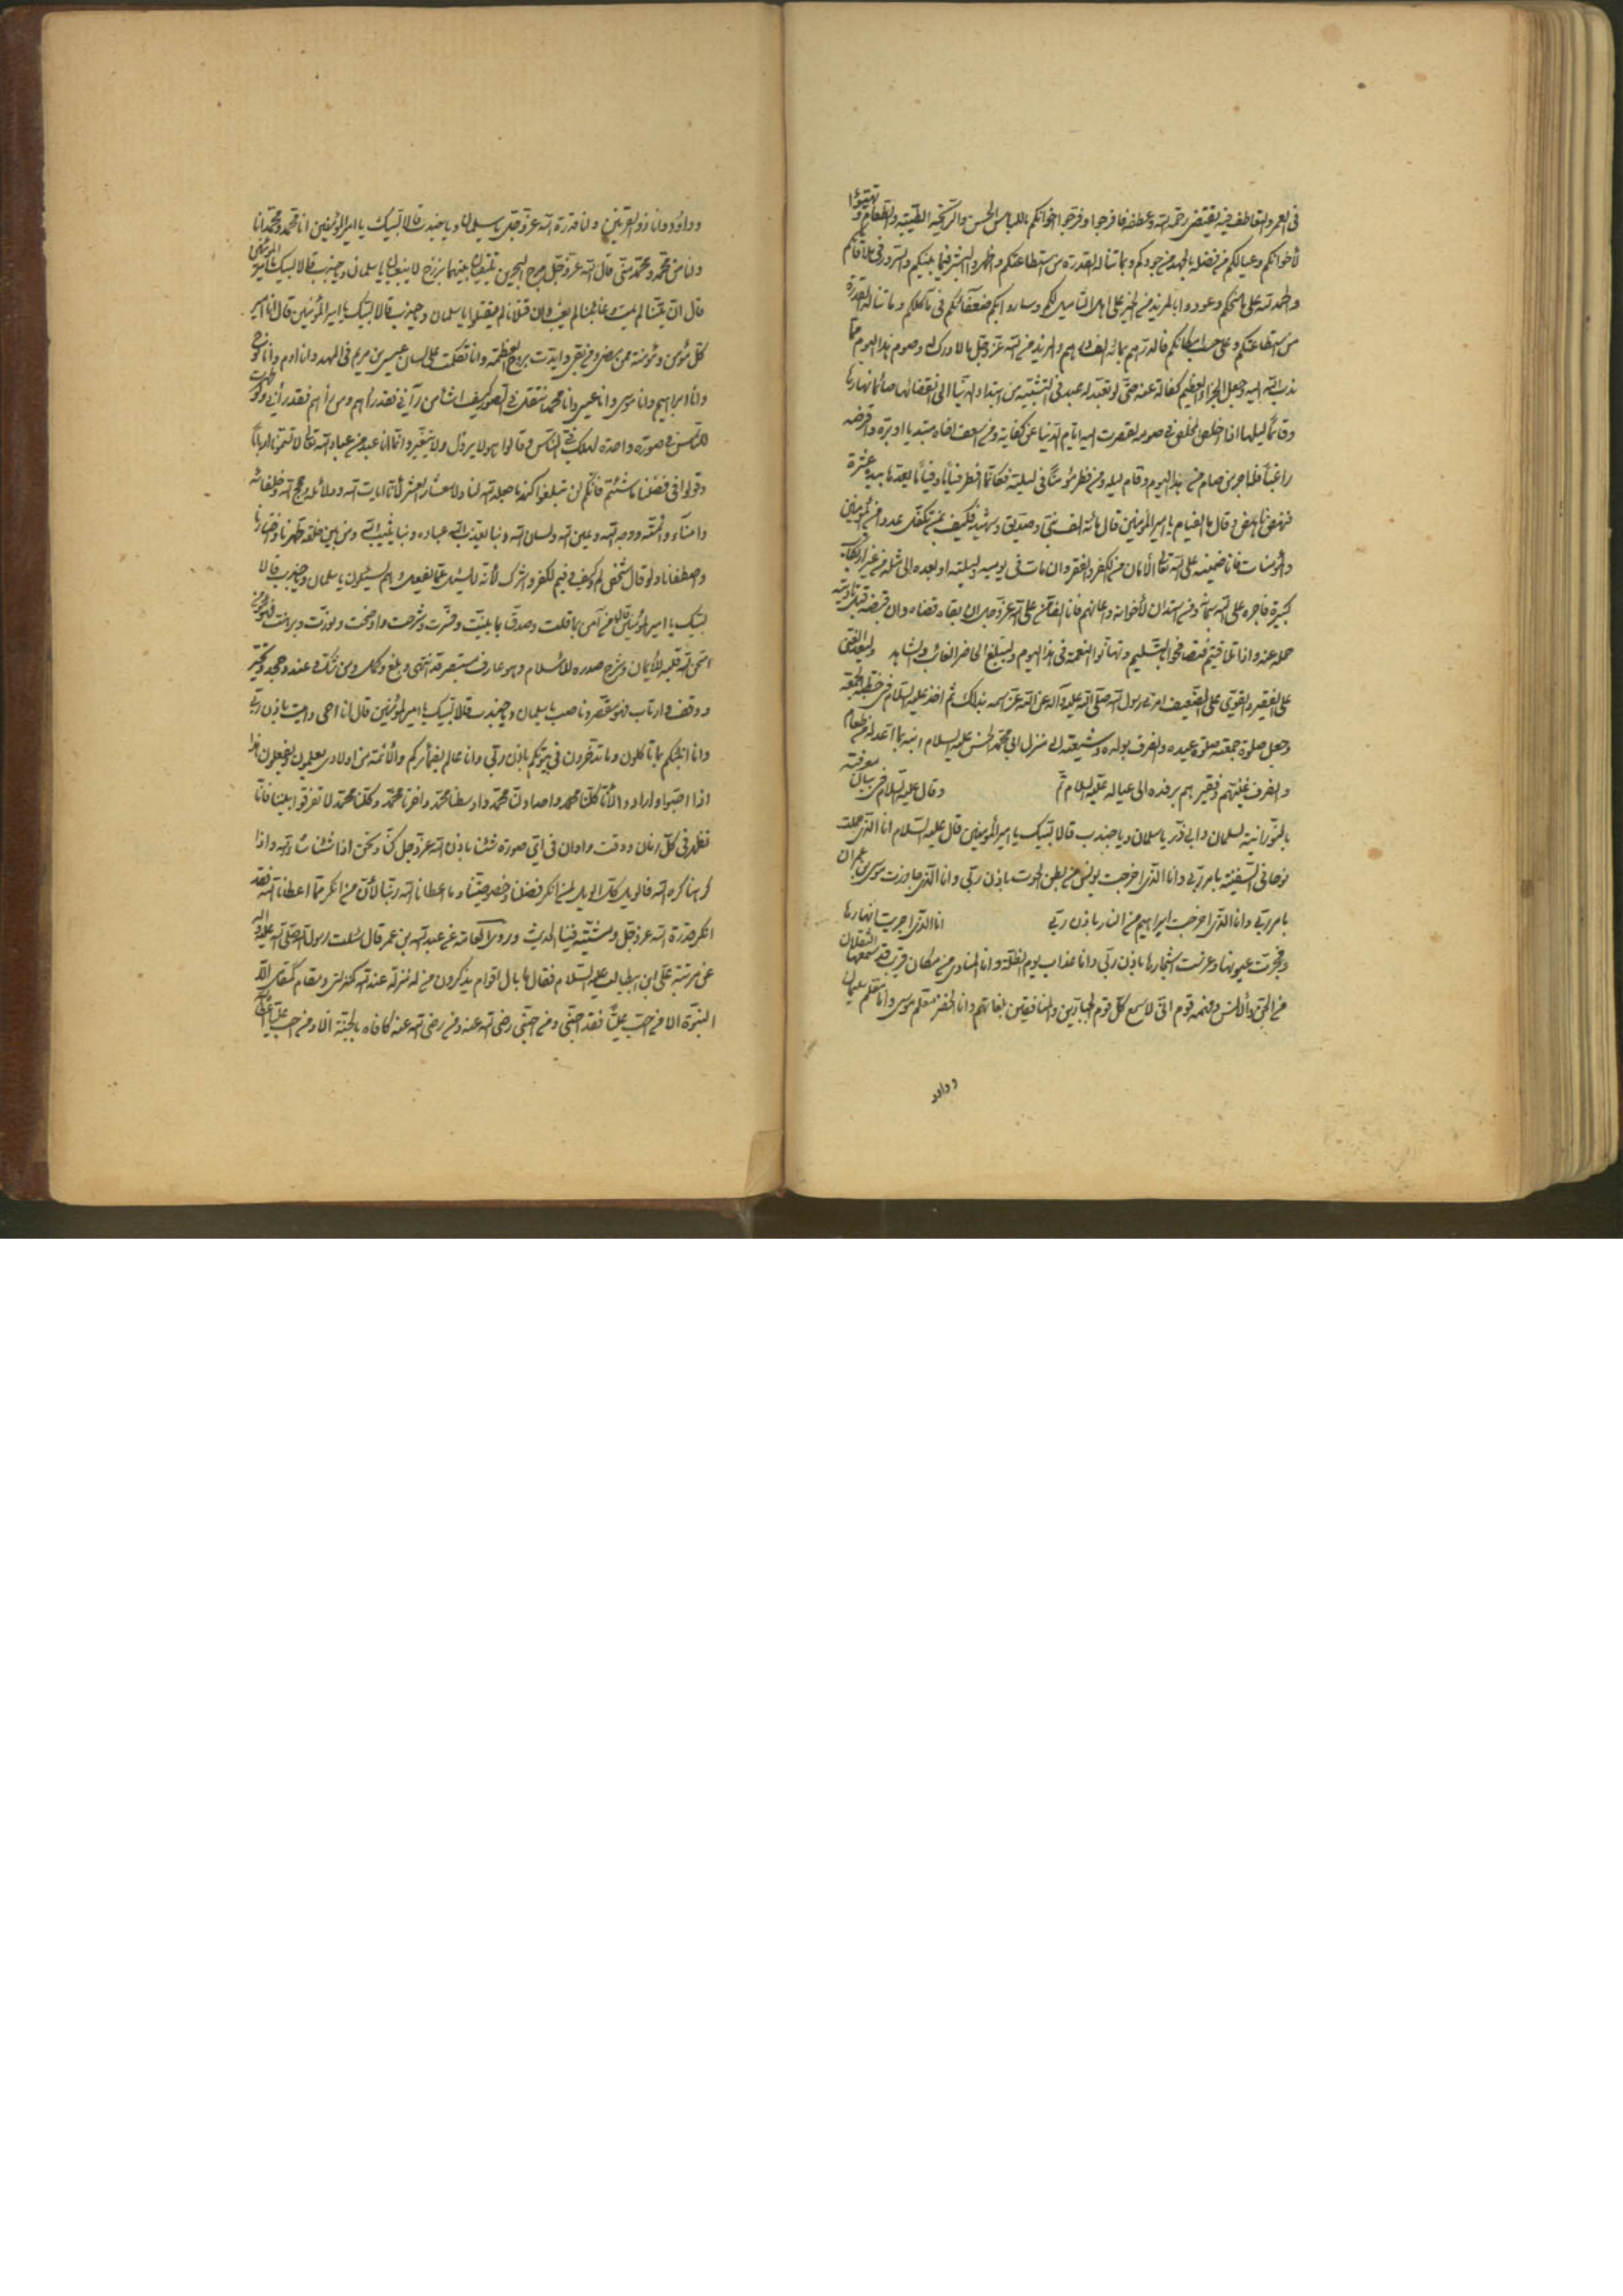 في العمر والتعاطف فيه يقتضي رحمة الله وعطفه فافرحوا وفرحوا اخوانكم باللباس الحسن والرايحة الطيبة والطعام وتهيؤا
لأخوانكم وعيالكم من فضله بالجهد من جودكم وبما تناله القدرة من استطاعتكم واظهروا البشر فيما بينكم والسرور في ملاقاتكم
والحمد لله على ما منحكم وعودوا بالمزيد من الخير على اهل التأميل لكم وساووا بكم ضعفائكم في مآكلكم وما تناله القدرة
من استطاعتكم وعلى حسب امكانكم فالدرهم بمائة الف درهم والمزيد من الله عز وجل بالادرك له وصوم هذا اليوم مما
ندب الله اليه وجعل الجزاء العظيم كفالة عنه حتى لو تعبد له عبد في التشبيه من ابتداء الدنيا الى انقضائها صائما نهارها
وقائما ليلها اذا خلص المخلص في صومه لقصرت اليه ايام الدنيا عن كفاية ومن اسعف اخاه مبتديا او بره واقرضه
راغبا فله اجر من صام هذا اليوم وقام ليله ومن فطر مؤمنا في ليلته فكانما فطر فئاما وفئاما يعدها بيده عشرة
فنهض ناهض وقال ما الفئام يا امير المؤمنين قال مائة الف نبي وصديق وشهيد فكيف بمن تكفل عددا من المؤمنين
والمؤمنات فانا ضمينه على الله تعالى الأمان من الكفر والفقر وان مات في يومه وليلته او بعده الى مثله من غير ارتكاب
كبيرة فاجره على الله تعالى ومن استدان لأخوانه واعانهم فانا الضامن على الله عز وجل ان بقاه قضاه وان قبضه قبل تأديته
حمله عنه واذا تلاقيتم فتصافحوا بالتسليم وتهانوا النعمة في هذا اليوم وليبلغ الحاضر الغائب والشاهد وليعد الغني
على الفقير والقوي على الضعيف امرني رسول الله صلى الله عليه وآله عن الله عز اسمه بذلك ثم اخذ عليه السلام في خطبة الجمعة
وجعل صلوة جمعته صلوة عيده وانصرف بولده وشيعته الى منزل ابي محمد الحسن عليه السلام ابنه بما اعد له من طعام
وانصرف غنيهم وفقيرهم برفده الى عياله عليه السلام ثم وقال عليه السلام في بيان معرفته
بالنورانية لسلمان وابي ذر يا سلمان ويا جندب قالا لبيك يا امير المؤمنين قال عليه السلام انا الذي حملت
نوحا في السفينة بامر ربي وانا الذي اخرجت يونس من بطن الحوت باذن ربي وانا الذي جاوزت موسى بن عمران
بامر ربي وانا الذي اخرجت ابراهيم من النار باذن ربي انا الذي اجريت انهارها
وفجرت عيونها وغرست اشجارها باذن ربي وانا عذاب يوم الظلة وانا المنادي من مكان قريب قد سمعها الثقلان
من الجن والانس وفهمه قوم اني لاسمع كل قوم الجبارين والمنافقين بلغاتهم وانا الخضر معلم موسى وانا معلم سليمان
وداود
وداود وانا ذو القرنين وانا قدرة الله عز وجل يا سلمان ويا جندب قالا لبيك يا امير المؤمنين انا محمد ومحمد انا
وانا من محمد ومحمد مني قال الله عز وجل مرج البحرين يلتقيان بينهما برزخ لا يبغيان يا سلمان ويا جندب قالا لبيك يا امير المؤمنين
قال ان ميتنا لم يمت وغائبنا لم يغب وان قتلانا لم يقتلوا يا سلمان ويا جندب قالا لبيك يا امير المؤمنين قال انا امير
كل مؤمن ومؤمنة ممن مضى وممن بقي وايدت بروح العظمة وانا تكلمت على لسان عيسى بن مريم في المهد وانا ادم وانا نوح
وانا ابراهيم وانا موسى وانا عيسى وانا محمد انتقل في الصور كيف اشاء من رآني فقد رآهم ومن رأهم فقد رأني ولو ظهرت
للناس في صورة واحدة لهلك في الناس وقالوا هو لا يزول ولا يتغير وانما انا عبد من عباد الله تعالى لا تسمونا اربابا
وقولوا في فضلنا ما شئتم فانكم لن تبلغوا كنه ما جعله الله لنا ولا معشار العشر لأنا ايات الله ودلائله وحجج الله وخلفائه
وامناء وائمته ووجه الله وعين الله ولسان الله وبنا يعذب الله عباده وبنا يثيب الله ومن بين خلقه طهرنا واختارنا
واصطفانا ولو قال شخص لم وكيف وفيم لكفر واشرك لأنه لا يسئل عما يفعل وهم يسئلون يا سلمان ويا جندب قالا
لبيك يا امير المؤمنين قال من آمن بما قلت وصدق بما بينت وفسرت وشرحت واوضحت ونورت وبرهنت فهو مؤمن
امتحن الله قلبه للأيمان وشرح صدره للأسلام وهو عارف مستبصر قد انتهى وبلغ وكمل ومن شك وعند وجحد وتحير
ووقف وارتاب فهو مقصر وناصب يا سلمان ويا جندب قالا لبيك يا امير المؤمنين قال انا احيي واميت باذن ربي
وانا انبئكم بما تأكلون وما تدخرون في بيوتكم باذن ربي وانا عالم بضمائركم والأئمة من اولادي يعلمون ويفعلون هذا
اذا احبوا وارادوا لأنا كلنا محمد واحد اولنا محمد واوسطنا محمد واخرنا محمد وكلنا محمد لا تفرقوا بيننا فانا
نظهر في كل زمان ووقت واوان في اي صورة شئنا باذن الله عز وجل كنا ونحن اذا شئنا شاء الله واذا
كرهنا كره الله فالويل كل الويل لمن انكر فضلنا وخصوصيتنا وما اعطانا الله ربنا لأن من انكر مما اعطانا الله فقد
انكر قدرة الله عز وجل ومشيته فينا الحديث وروى العامة عن عبد الله بن عمر قال سئلت رسول الله صلى الله عليه واله
عن مرتبة علي ابن ابيطالب عليه السلام فقال ما بال اقوام يذكرون من له منزلة عند الله كمنزلتي ومقام كمقامي الا
النبوة الا من احب عليا فقد احبني ومن احبني رضي الله عنه ومن رضي الله عنه كافاه بالجنة الا ومن احب عليا اعطاه الله